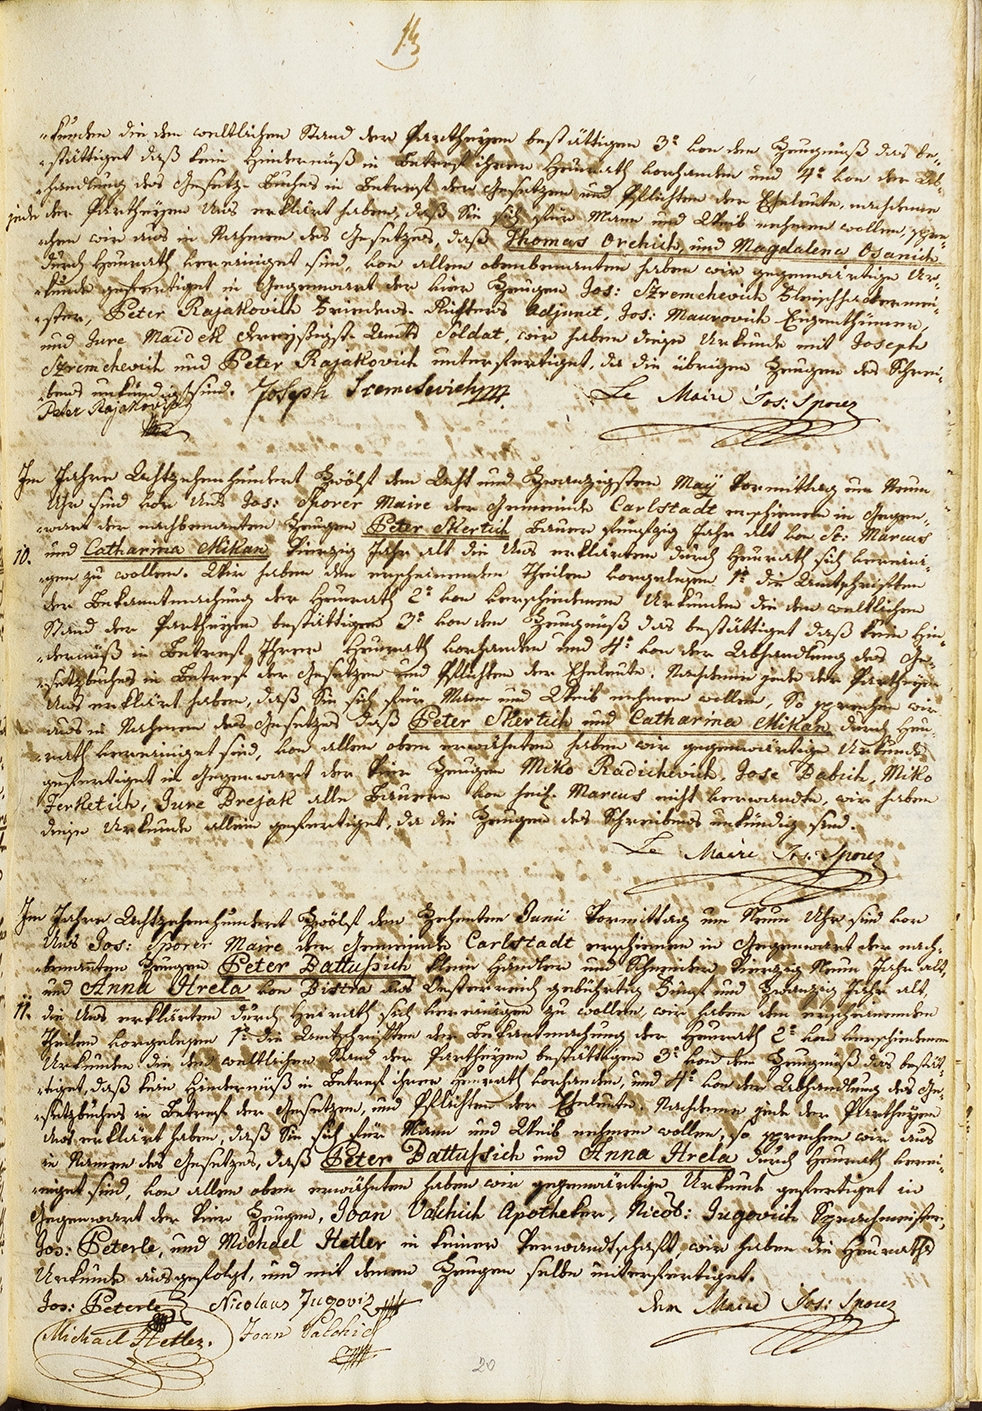 13
-kunden die den weltlichen Stand der Partheyen bestättigen 3º von dem Zeugnüß das be-
-stättiget daß kein Hindernüß in Betref ihrer Heurath vorhanden und 4º von der Ab-
-handlung des Gesetz-Buches in Betref der Gesetzen und Pflichten der Eheleute, nachdeme
jede der Partheyen Uns erklärt haben, daß Sie sich für Mann und Weib nehmen wollen, spre-
-chen wir aus in Nahmen des Gesetzes, daß Thomas Orchich und Magdalena Osanich
durch Heurath vereiniget sind, von allen obenbenanten haben wir gegenwärtige Ur-
-kunde gefertiget in Gegenwart der vier Zeugen Jos: Szremchevich Fleischhackermei-
-ster, Peter Rajakovich Friedens-Richters Adjunct, Jos: Maurovich Eigenthümer,
und Jure Maidek Dreyßigst-Amts Soldat, wir haben diese Urkunde mit Joseph
Szremchevich und Peter Rajakovich unterfertiget, da die übrigen Zeugen des Schrei-
-bens unkündig sind. Joseph Sremchevich
Le Maire Jos: Sporer
Peter Rajakovich
Im Jahre Achtzehenhundert Zwölf den Acht und Zwanzigsten May Vormittag um Neun
Uhr sind vor Uns Jos: Sporer Maire der Gemeinde Carlstadt erschienen in Gegen-
-wart der nachbenanten Zeugen Peter Skertich Bauer fünfzig Jahr alt von St: Marcus
10. und Catharina Mikan vierzig Jahr alt die Uns erklärten durch Heurath sich vereini-
-gen zu wollen. Wir haben den erscheinenden Theilen vorgelegen 1º die Amtschriften
der Bekanntmachung der Heurath 2º von verschiedenen Urkunden die den weltlichen
Stand der Partheyen bestättigen 3º von dem Zeugnüß das bestättiget daß kein Hin-
-dernüß in Betref Ihrer Heurath vorhanden und 4º von der Abhandlung des Ge-
-setzbuches in Betref der Gesetzen und Pflichten der Eheleute. Nachdeme jede der Partheyen
Uns erklärt haben, daß Sie sich für Mann und Weib nehmen wollen, So sprechen wir
aus in Nahmen des Gesetzes daß Peter Skertich und Catharina Mikan durch Heu-
-rath vereiniget sind, von allen oben erwähnten haben wir gegenwärtige Urkunde
gefertiget in Gegenwart der vier Zeugen Miko Radichevich, Jose Babich, Miko
Ferketich, Jure Brejak alle Bauern von heil. Marcus nicht verwandt, wir haben
diese Urkunde allein gefertiget, da die Zeugen des Schreibens unkündig sind.
Le Maire Jos: Sporer
Im Jahre Achtzehenhundert Zwölf den Zehenten Junii Vormittag um Neun Uhr sind vor
Uns Jos: Sporer Maire der Gemeinde Carlstadt erschienen in Gegenwart der nach-
-benanten Zeugen Peter Battussich klein Händler und Schneider vierzig Neun Jahr alt,
und Anna Strela von Bistra aus Oesterreich gebürtig Fünf und Zwanzig Jahr alt,
11. die Uns erklärten durch Heurath sich vereinigen zu wollen, wir haben den erscheinenden
Theilen vorgelegen 1º die Amtschriften der Bekantmachung der Heurath 2º von verschiedenen
Urkunden die den weltlichen Stand der Partheyen bestättigen 3º von dem Zeugnüß das bestät-
-tiget, daß kein Hindernüß in Betref ihrer Heurath vorhanden, und 4º von der Abhandlung des Ge-
-setzbuches in Betref der Gesetzen, und Pflichten der Eheleute. Nachdeme jede der Partheyen
Uns erklärt haben, daß Sie sich für Mann und Weib nehmen wollen, so sprechen wir aus
in Namen des Gesetzes, daß Peter Battussich und Anna Strela durch Heurath verei-
-niget sind, von allen oben erwähnten haben wir gegenwärtige Urkunde gefertiget in
Gegenwart der vier Zeugen, Ioan Valchich Apotheker, Nicob: Jugovich Sprachmeister,
Jos: Peterle, und Michael Hetler in keiner Verwandtschaft, wir haben die Heuraths
Urkunde ausgefolgt, und mit denen Zeugen selbe unterfertiget.
Jos: Peterle Nicolaus Jugoviz
Der Maire Jos: Sporer
Michael Hetler. Ioan Valchich
20